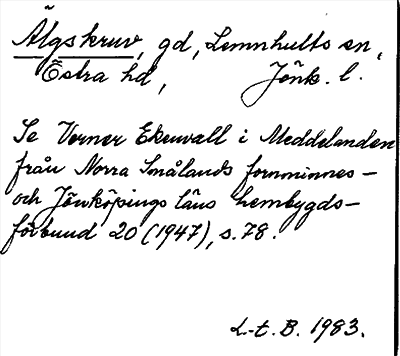 Älgskruv, gd, Lemnhults sn,
Östra hd, Jönk. l.
Se Verner Ekenvall i Meddelanden
från Norra Smålands fornminnes-
och Jönköpings läns hembygds-
förbund 20 (1947), s. 78.
L-t. B. 1983.